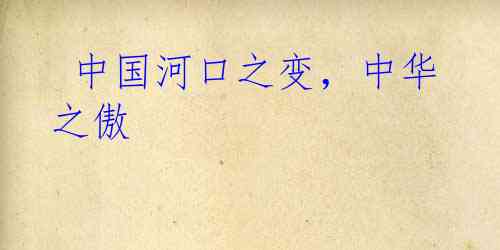 中国河口之变，中华
之傲